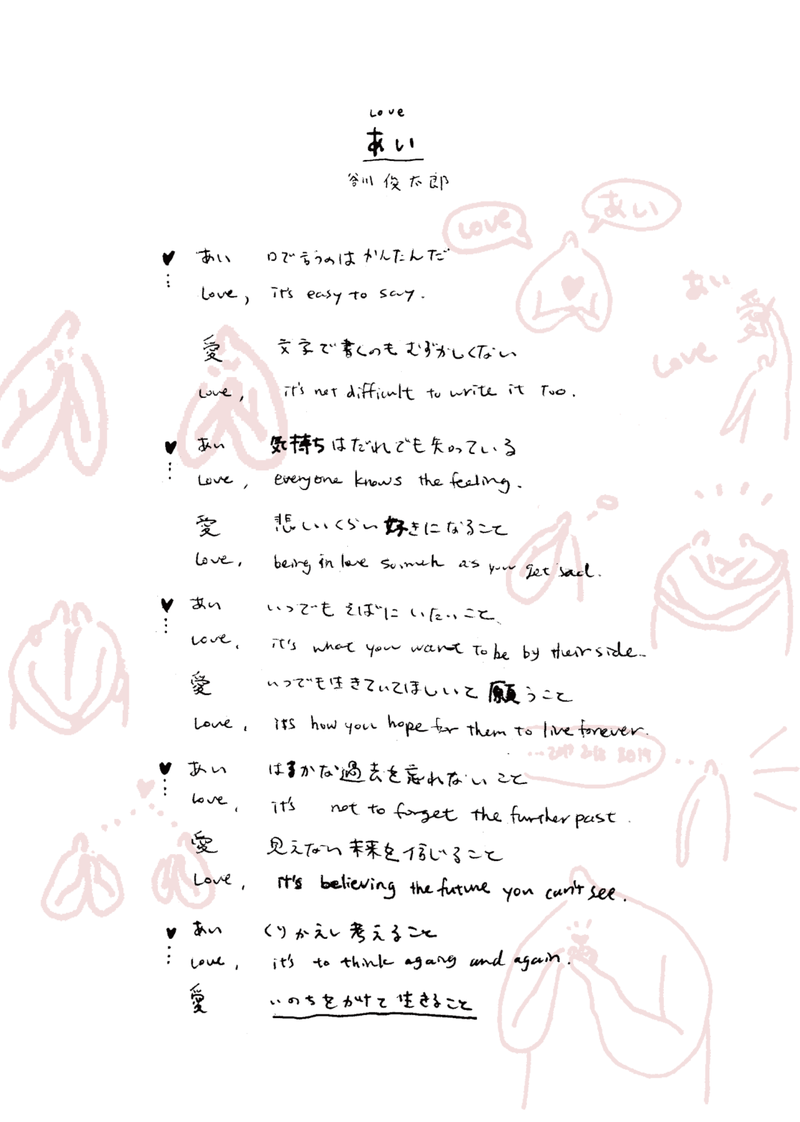 Love
あい
谷川俊太郎
Love
あい
♥ あい 口で言うのはかんたんだ
Love, it's easy to say.
あい
愛
Love
愛 文字で書くのもむずかしくない
Love, it's not difficult to write it too.
♥ あい 気持ちはだれでも知っている
Love, everyone knows the feeling.
愛 悲しいくらい好きになること
Love, being in love so much as you get sad.
♥ あい いつでもそばにいたいこと
Love, it's what you want to be by their side.
愛 いつでも生きていてほしいと願うこと
Love, it's how you hope for them to live forever.
... 2017 2018 2019 ...
♥ あい はるかな過去を忘れないこと
Love, it's not to forget the further past.
愛 見えない未来を信じること
Love, it's believing the future you can't see.
♥ あい くりかえし考えること
Love, it's to think agang and again.
愛 いのちをかけて生きること